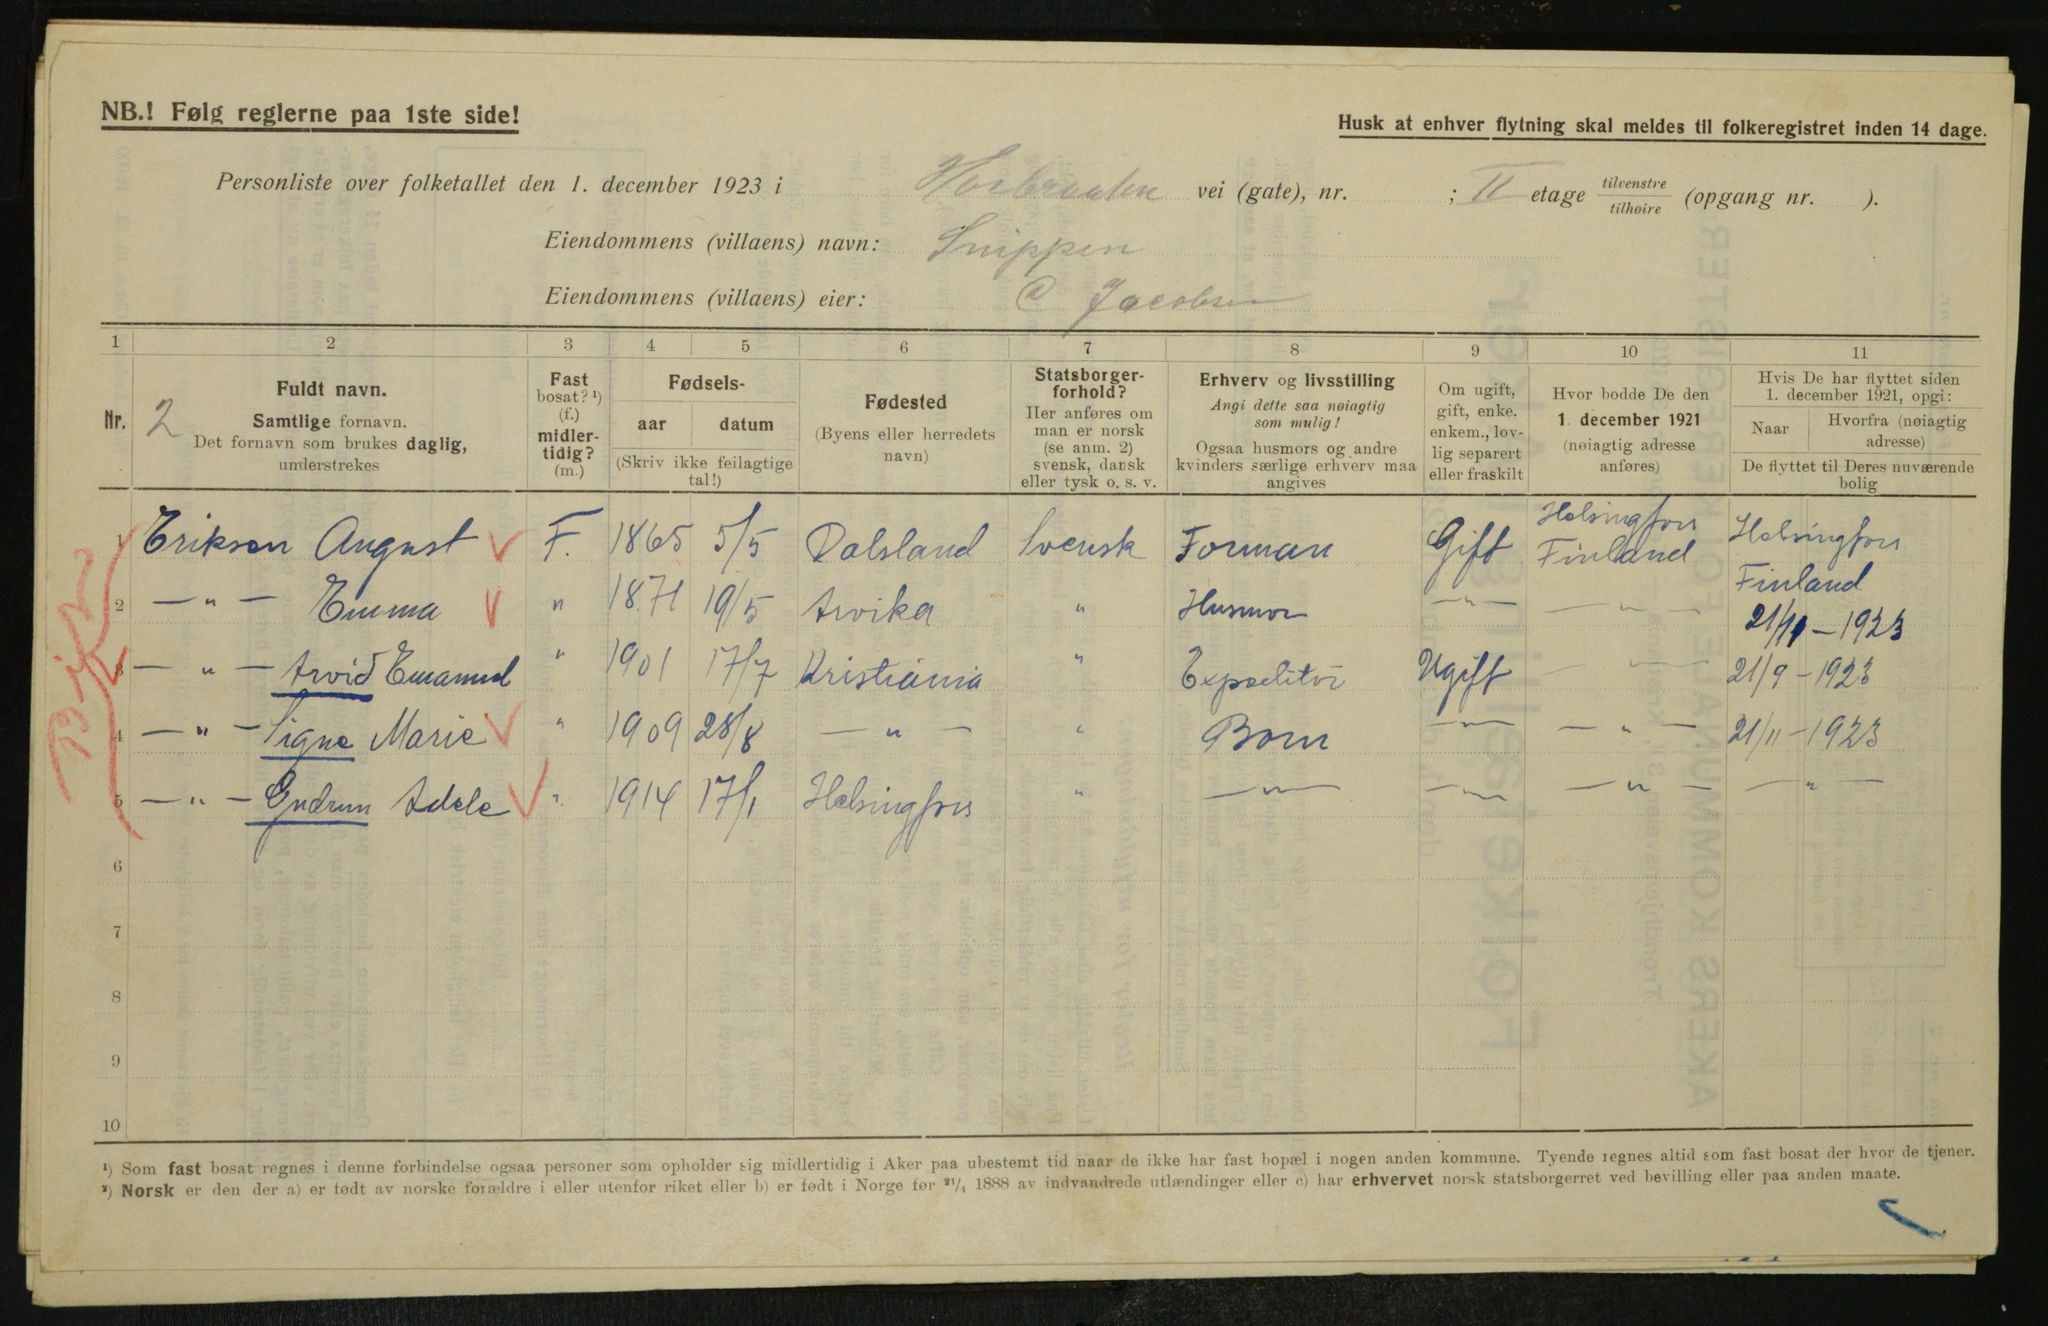 NB.! Følg reglerne paa 1ste side!
Husk at enhver flytning skal meldes til folkeregistret inden 14 dage.
Personliste over folketallet den 1. december 1923 i Horbraaten vei (gate), nr. ; II etage tilvenstre tilhøire (opgang nr. ).
Eiendommens (villaens) navn: Snippen
Eiendommens (villaens) eier: Jacobsen
1 2 3 4 5 6 7 8 9 10 11
Nr. 2
Fuldt navn.
Samtlige fornavn.
Det fornavn som brukes daglig,
understrekes
Fast
bosat? ¹)
(f.)
midler-
tidig?
(m.)
Fødsels-
aar datum
(Skriv ikke feilagtige
tal!)
Fødested
(Byens eller herredets
navn)
Statsborger-
forhold?
Her anføres om
man er norsk
(se anm. 2)
svensk, dansk
eller tysk o. s. v.
Erhverv og livsstilling
Angi dette saa nøiagtig
som mulig!
Ogsaa husmors og andre
kvinders særlige erhverv maa
angives
Om ugift,
gift, enke.
enkem., lov-
lig separert
eller fraskilt
Hvor bodde De den
1. december 1921
(nøiagtig adresse
anføres)
Hvis De har flyttet siden
1. december 1921, opgi:
Naar
Hvorfra (nøiagtig
adresse)
De flyttet til Deres nuværende
bolig
1 Erikson August F. 1865 5/5 Dalsland Svensk Forman Gift Helsingfors Finland Helsingfors Finland
2 — " — Emma " 1871 19/5 Arvika " Husmor — " — — " — 21/11 — 1923
3 — " — Arvid Emanuel " 1901 17/7 Kristiania " Expeditør Ugift — " — 21/9 — 1923
4 — " — Signe Marie " 1909 28/8 — " — " Barn — " — — " — 21/11 — 1923
5 — " — Gudrun Adele " 1914 17/1 Helsingfors " — " — — " — — " — — " —
6
7
8
9
10
¹) Som fast bosat regnes i denne forbindelse ogsaa personer som opholder sig midlertidig i Aker paa ubestemt tid naar de ikke har fast bopæl i nogen anden kommune. Tyende regnes altid som fast bosat der hvor de tjener.
²) Norsk er den der a) er født av norske forældre i eller utenfor riket eller b) er født i Norge før ²¹/₄ 1888 av indvandrede utlændinger eller c) har erhvervet norsk statsborgerret ved bevilling eller paa anden maate.